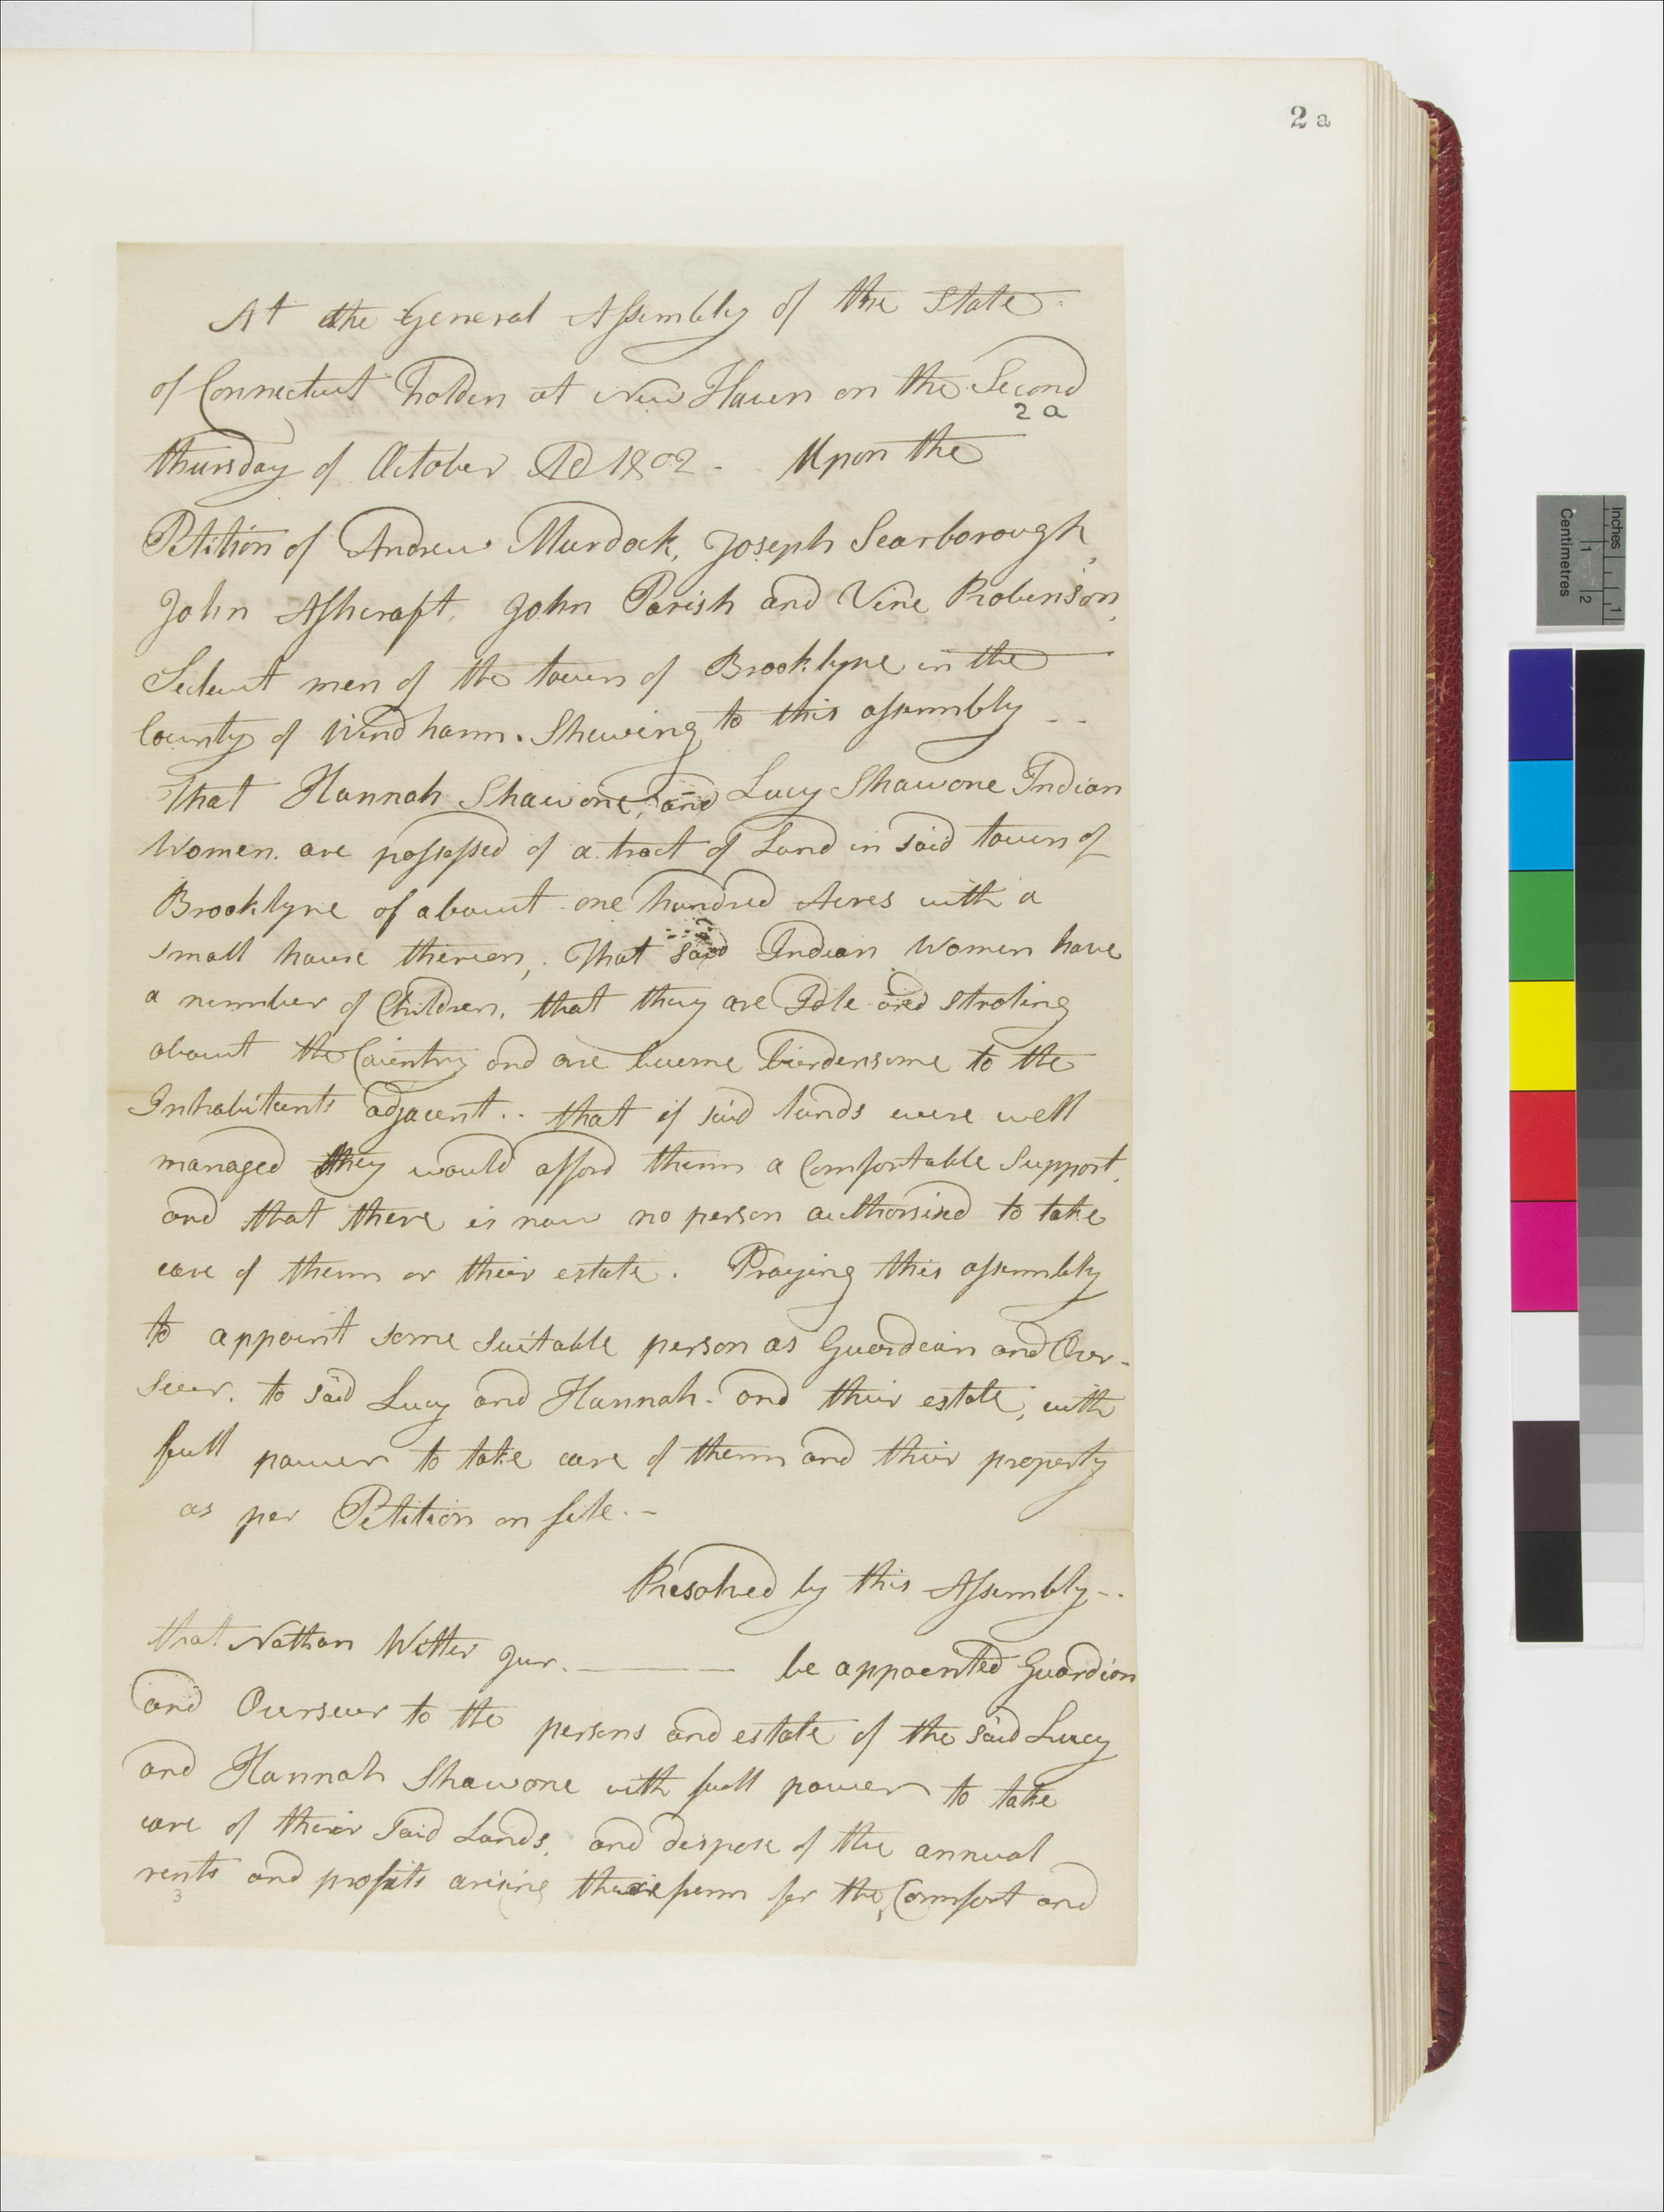 2 a
At the General Assembly of the State
of Connecticut holden at New Haven on the Second
2 a
thursday of October AD 1802 - Upon the
Petition of Andrew Murdock, Joseph Scarborough,
John Ashcraft, John Parish and Vine Robinson,
Select men of the town of Brooklyne in the
County of Windham. Shewing to this assembly --
That Hannah Shawone, and Lucy Shawone Indian
Women are possessed of a tract of Land in said town of
Brooklyne of about one hundred Acres with a
small house thereon, That said Indian Women have
a number of Children, that they are Idle and stroling
about the Country and are become burdensome to the
Inhabitants adjacent.. that if said lands were well
managed they would afford them a Comfortable Support,
and that there is now no person authorised to take
care of them or their estate. Praying this assembly
to appoint some suitable person as Guardian and Over-
seer. to said Lucy and Hannah. and their estate, with
full power to take care of them and their property
as per Petition on file.-
Resolved by this Assembly--
that Nathan Witter Jur. be appointed Guardian
and Overseer to the persons and estate of the said Lucy
and Hannah Shawone with full power to take
care of their said Lands, and dispose of the annual
rents and profits arising therefrom for the, Comfort and
3
Inches
1
Centimetres
1
2